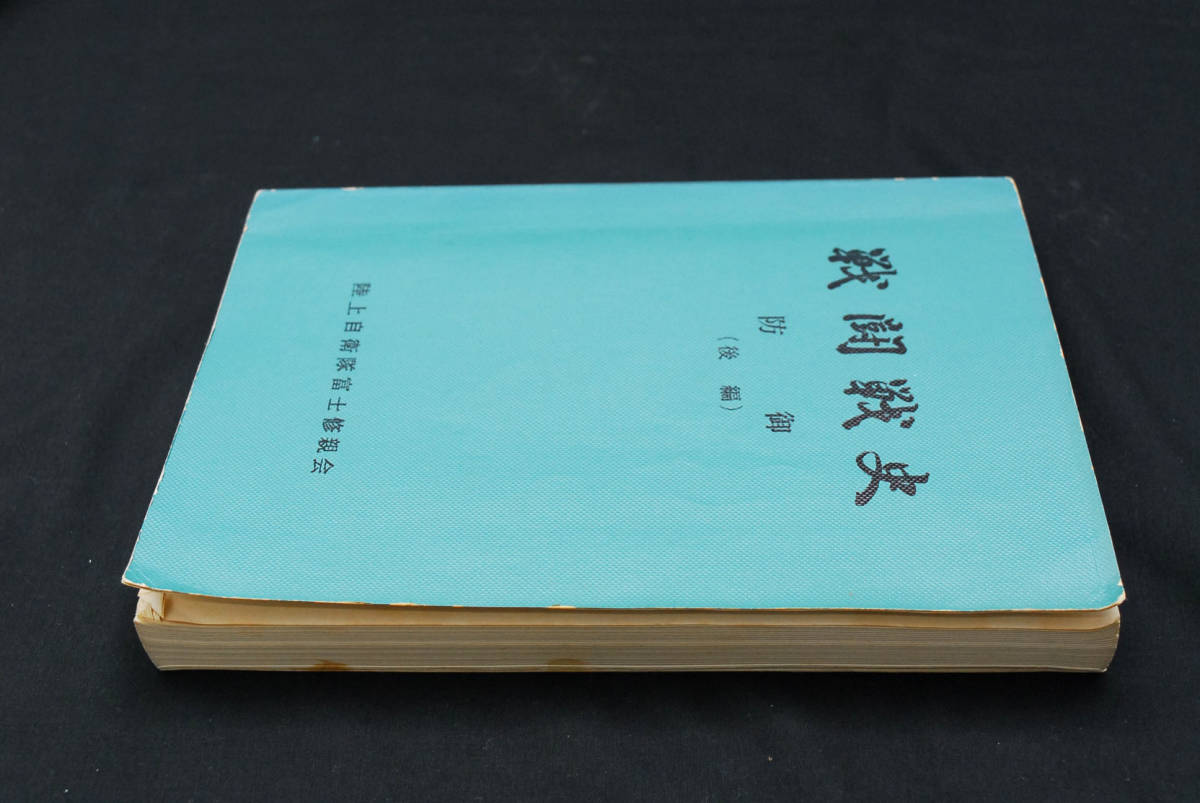 戦闘戦史
防御
（後編）
陸上自衛隊富士修親会